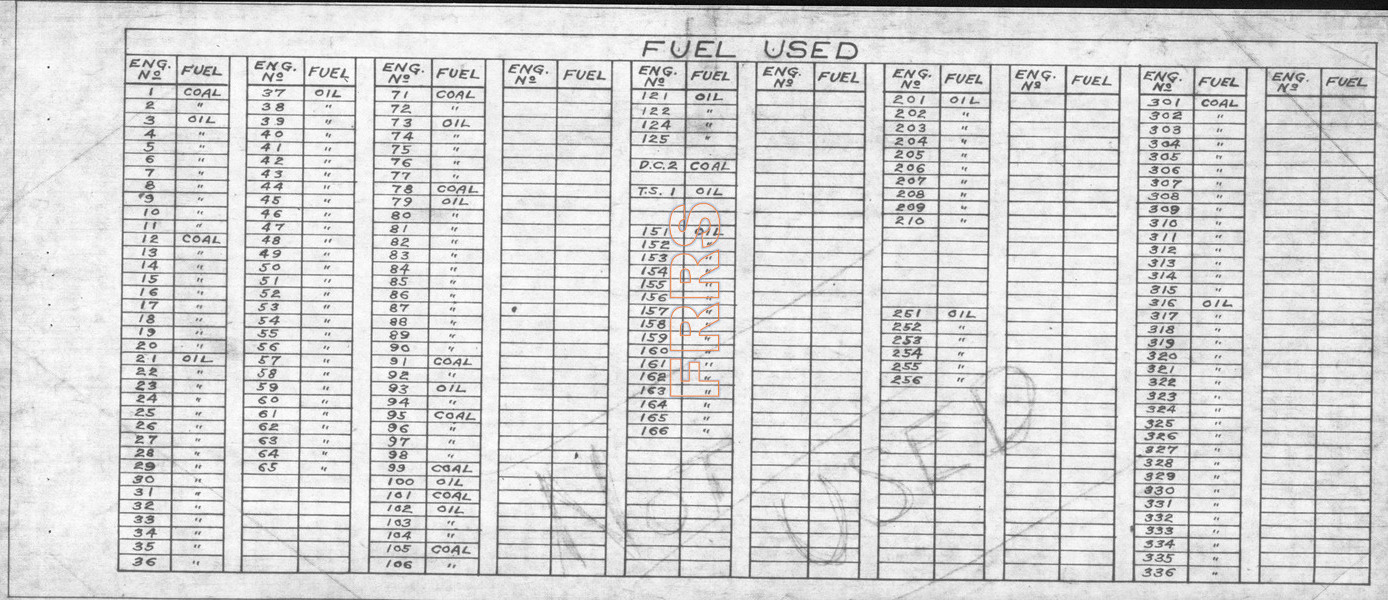 FUEL USED
ENG. Nº FUEL
1 COAL
2 "
3 OIL
4 "
5 "
6 "
7 "
8 "
9 "
10 "
11 "
12 COAL
13 "
14 "
15 "
16 "
17 "
18 "
19 "
20 "
21 OIL
22 "
23 "
24 "
25 "
26 "
27 "
28 "
29 "
30 "
31 "
32 "
33 "
34 "
35 "
36 "
ENG. Nº FUEL
37 OIL
38 "
39 "
40 "
41 "
42 "
43 "
44 "
45 "
46 "
47 "
48 "
49 "
50 "
51 "
52 "
53 "
54 "
55 "
56 "
57 "
58 "
59 "
60 "
61 "
62 "
63 "
64 "
65 "
ENG. Nº FUEL
71 COAL
72 "
73 OIL
74 "
75 "
76 "
77 "
78 COAL
79 OIL
80 "
81 "
82 "
83 "
84 "
85 "
86 "
87 "
88 "
89 "
90 "
91 COAL
92 "
93 OIL
94 "
95 COAL
96 "
97 "
98 "
99 COAL
100 OIL
101 COAL
102 OIL
103 "
104 "
105 COAL
106 "
ENG. Nº FUEL
ENG. Nº FUEL
121 OIL
122 "
124 "
125 "
D.C.2 COAL
T.S. 1 OIL
151 OIL
152 "
153 "
154 "
155 "
156 "
157 "
158 "
159 "
160 "
161 "
162 "
163 "
164 "
165 "
166 "
FRRS
ENG. Nº FUEL
ENG. Nº FUEL
201 OIL
202 "
203 "
204 "
205 "
206 "
207 "
208 "
209 "
210 "
251 OIL
252 "
253 "
254 "
255 "
256 "
ENG. Nº FUEL
ENG. Nº FUEL
301 COAL
302 "
303 "
304 "
305 "
306 "
307 "
308 "
309 "
310 "
311 "
312 "
313 "
314 "
315 "
316 OIL
317 "
318 "
319 "
320 "
321 "
322 "
323 "
324 "
325 "
326 "
327 "
328 "
329 "
330 "
331 "
332 "
333 "
334 "
335 "
336 "
ENG. Nº FUEL
NOT USED